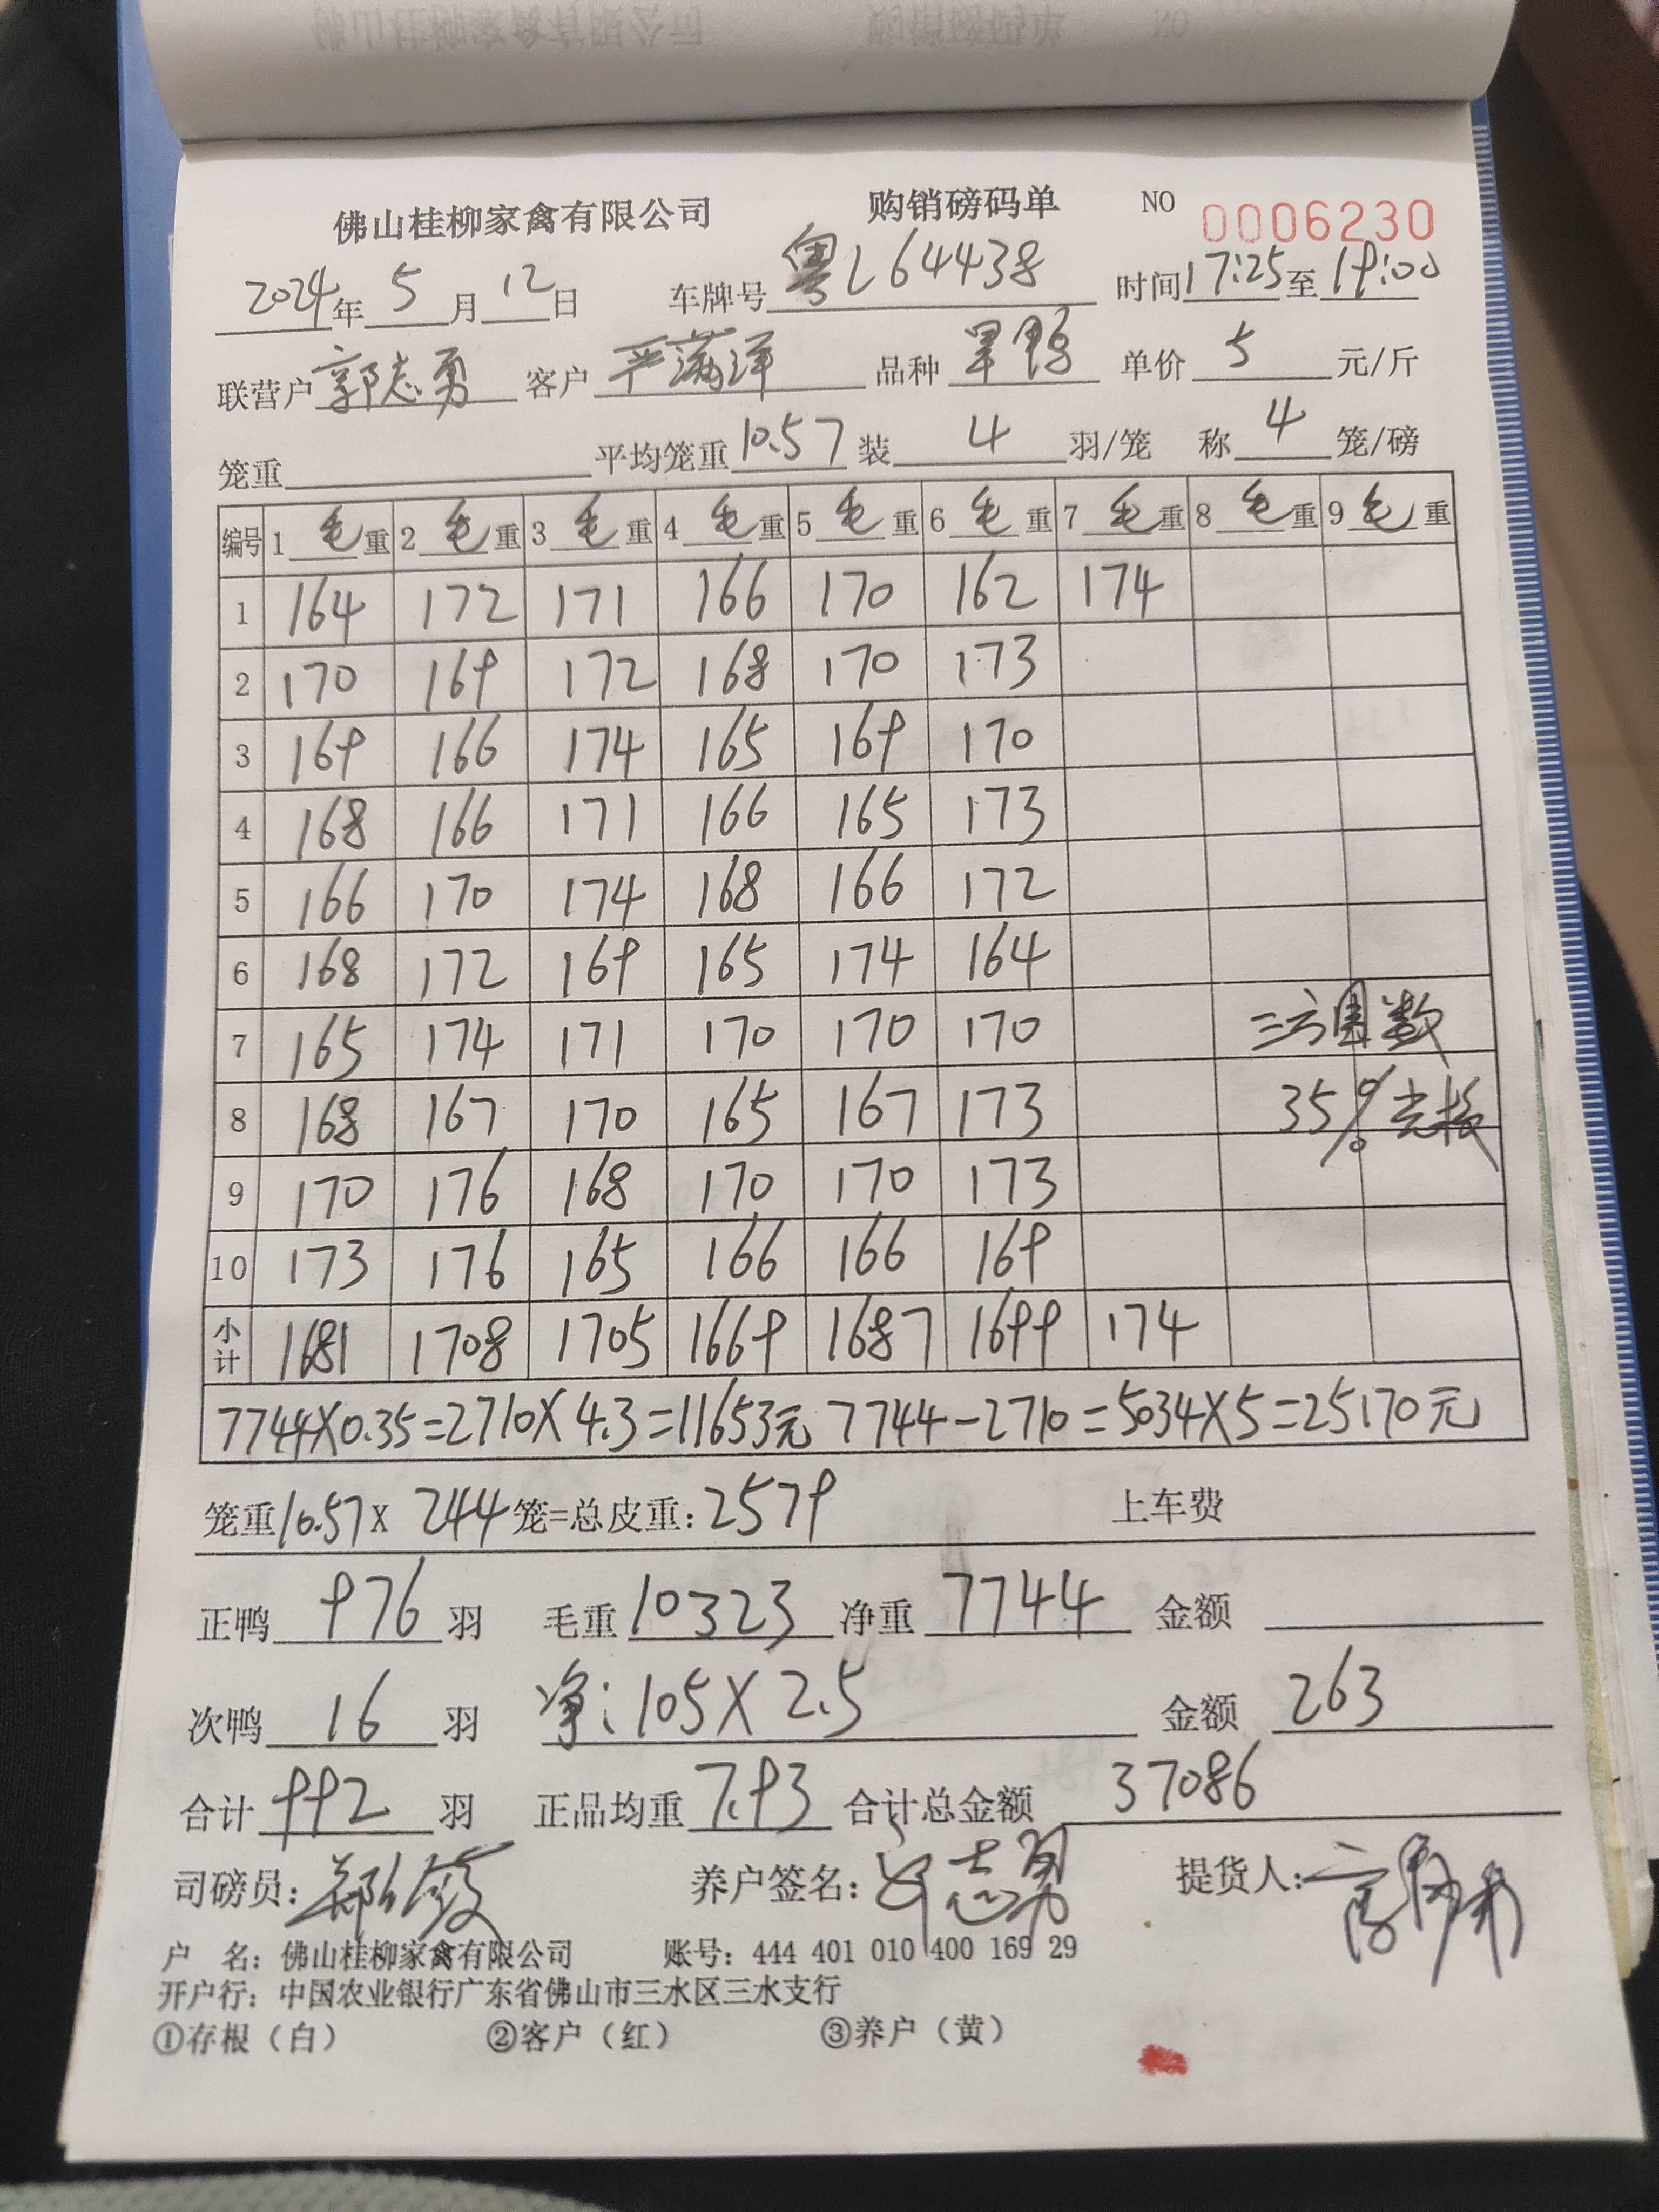 佛山桂柳家禽有限公司 购销磅码单 NO 0006230
2024年5月12日 车牌号粤L64438 时间17:25至19:00
联营户郭志勇 客户严满洋 品种旱鸭 单价5元/斤
笼重 平均笼重10.57装4羽/笼 称4笼/磅
编号 1毛重 2毛重 3毛重 4毛重 5毛重 6毛重 7毛重 8毛重 9毛重
1 164 172 171 166 170 162 174
2 170 169 172 168 170 173
3 169 166 174 165 169 170
4 168 166 171 166 165 173
5 166 170 174 168 166 172
6 168 172 169 165 174 164
7 165 174 171 170 170 170 三方 数
8 168 167 170 165 167 173 35%
9 170 176 168 170 170 173
10 173 176 165 166 166 169
小计 1681 1708 1705 1669 1687 1699 174
7744X0.35=2710X4.3=11653元 7744-2710=5034X5=25170元
笼重10.57X 244笼=总皮重:2579 上车费
正鸭976羽 毛重10323净重7744 金额
次鸭16羽 净:105X2.5 金额263
合计992羽 正品均重7.93 合计总金额37086
司磅员: 养户签名: 志勇 提货人:
户 名: 佛山桂柳家禽有限公司 账号: 444 401 010 400 169 29
开户行: 中国农业银行广东省佛山市三水区三水支行
①存根（白） ②客户（红） ③养户（黄）